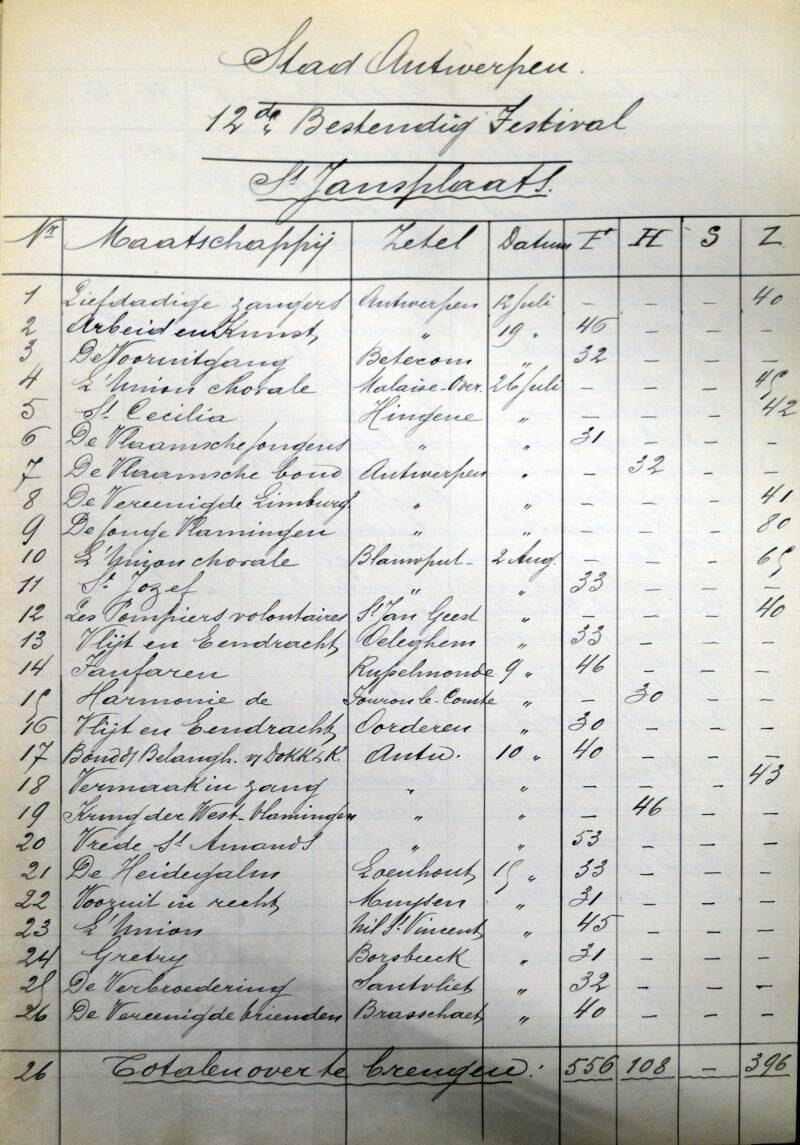 Stad Antwerpen.
12de Bestendig Festival
St Jansplaats.
Nr Maatschappij Zetel Datum Fr H S Z
1 Liefdadige zangers Antwerpen 12 Juli – – – 40
2 Arbeid en Kunst " 19 " 46 – – –
3 De Vooruitgang Betecom " 32 – – –
4 L'Union chorale Malaise-Over. 26 Juli – – – 45
5 St Cecilia Hingene " – – – 42
6 De Vlaamsche Jongens " " 31 – – –
7 De Vlaamsche bond Antwerpen " – 32 – –
8 De Vereenigde Limburg. " " – – – 41
9 De Jonge Vlamingen " " – – – 80
10 L'Union chorale Blauwput- 2 Aug. – – – 65
11 St Jozef " " 33 – – –
12 Les Pompiers volontaires St Jan Geest " – – – 40
13 Vlijt en Eendracht Oeleghem " 33 – – –
14 Fanfaren Rupelmonde 9 " 46 – – –
15 Harmonie de Touron le-Comte " – 30 – –
16 Vlijt en Eendracht Oorderen " 30 – – –
17 Bond d/ Belangh. v/ Dokk & K. Antw. 10 " 40 – – –
18 Vermaak in zang " " – – – 43
19 Kring der West-Vlamingen " " – 46 – –
20 Vrede St Amands " " 53 – – –
21 De Heidegalm Loenhout 15 " 33 – – –
22 Vooruit in recht Muysen " 31 – – –
23 L'Union Nil St Vincent " 45 – – –
24 Gretry Borsbeeck " 31 – – –
25 De Verbroedering Santvliet " 32 – – –
26 De Vereenigde vrienden Brasschaet " 40 – – –
26 Totalen over te brengen: 556 108 – 396